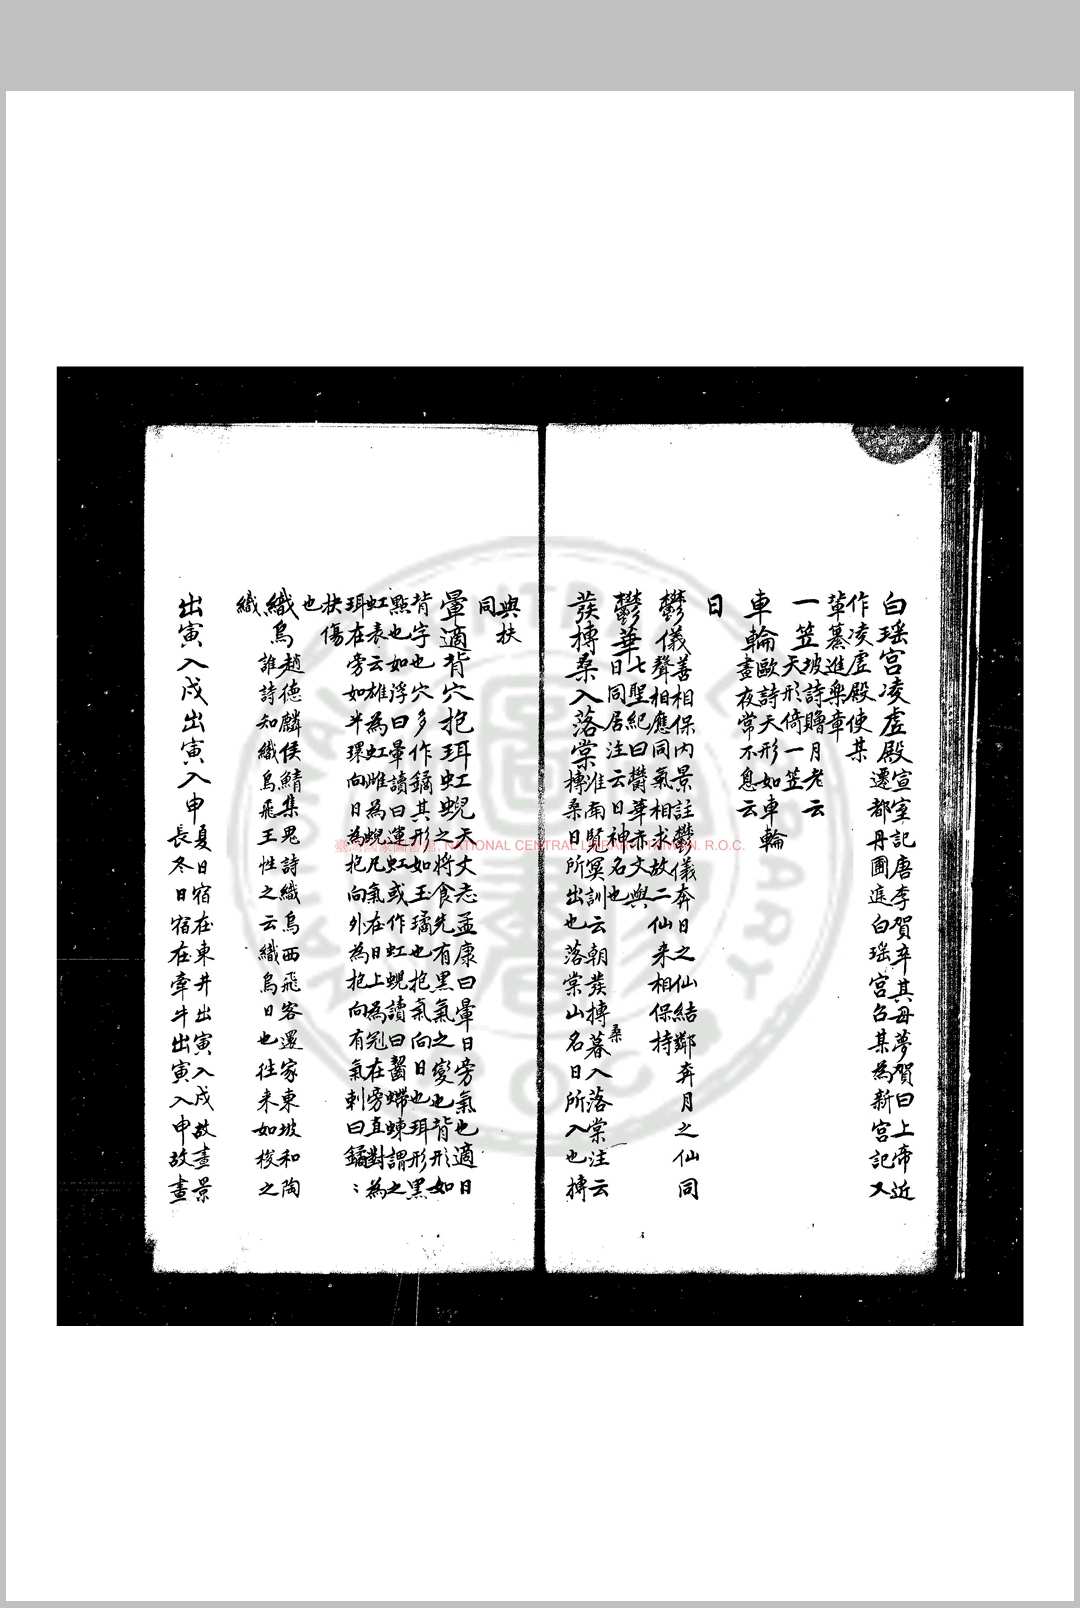 白瑶宫凌虚殿宣室記唐李賀卒其母夢賀曰上帝近
遷都丹圃進白瑶宫召某為新宫記又
作凌虚殿使某
輩纂進樂章
一笠坡詩贈月老云
天形倚一笠
車輪歐詩天形如車輪
晝夜常不息云
日
鬱儀善相保内景註鬱儀奔日之仙結鄰奔月之仙同
聲相應同氣相求故二仙来相保持
鬱華七聖紀曰鬱華赤文與
日同居注云日神名也
䒳槫桑入落棠淮南覽冥訓云朝䒳槫桑暮入落棠注云
槫桑日所出也落棠山名日所入也槫
與扶
同
暈適背穴抱珥虹蜺天文志孟康曰暈日旁氣也適日
之將食先有黑氣之變也背形如
背字也穴多作鐍其形如玉璚也抱氣向日也珥形黑
點也如浮曰暈讀曰運虹或作虹蜺讀曰齧螮蝀謂之
虹表云雄為虹雌為蜺凡氣在日上為冠在旁直對為
珥在旁如半環向日為抱向外為抱向有氣刺曰鐍ミ
抉傷
也
織烏趙德麟侯鯖集鬼詩織烏西飛客還家東坡和陶
誰詩知織烏飛王性之云織烏日也往来如梭之
織
出寅入戌出寅入申夏日宿在東井出寅入戌故晝景
長冬日宿在牽牛出寅入申故晝
臺灣國家圖書館, NATIONAL CENTRAL LIBRARY, TAIWAN. R.O.C.